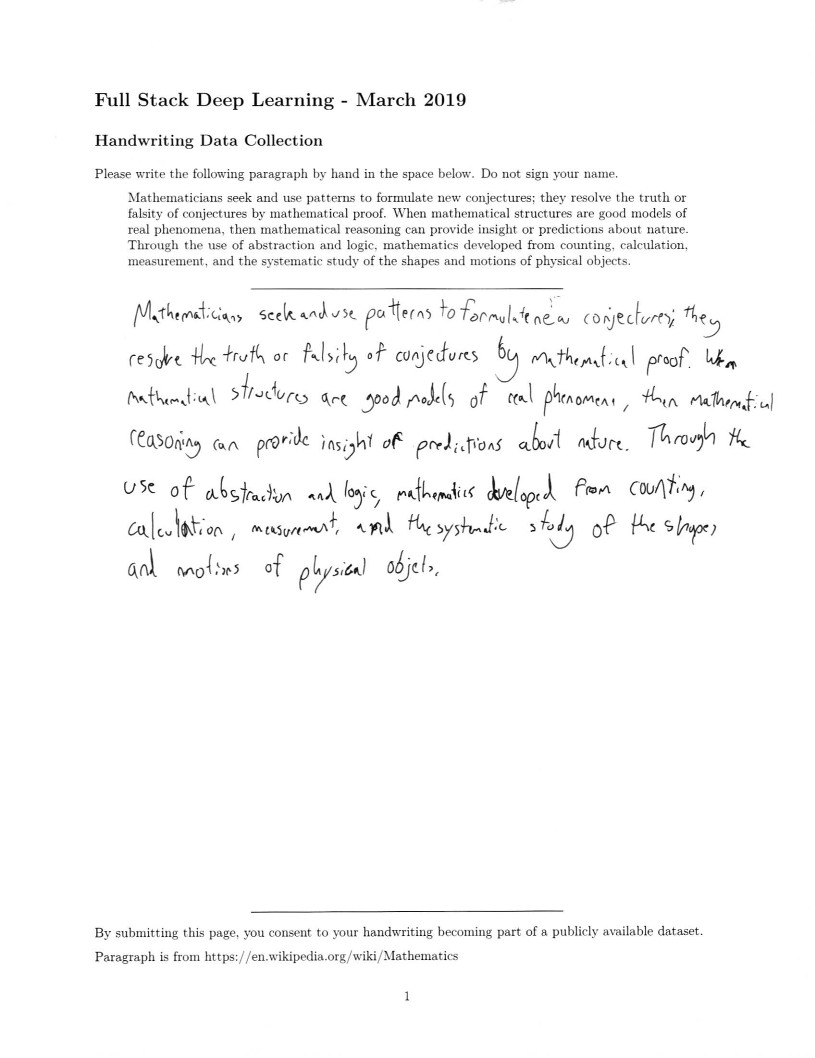 Full Stack Deep Learning - March 2019
Handwriting Data Collection
Please write the following paragraph by hand in the space below. Do not sign your name.
Mathematicians seek and use patterns to formulate new conjectures; they resolve the truth or
falsity of conjectures by mathematical proof. When mathematical structures are good models of
real phenomena, then mathematical reasoning can provide insight or predictions about nature.
Through the use of abstraction and logic, mathematics developed from counting, calculation,
measurement, and the systematic study of the shapes and motions of physical objects.
Mathematicians seek and use patterns to formulate new conjectures; they
resolve the truth or falsity of conjectures by mathematical proof. When
mathematical structures are good models of real phenomena, then mathematical
reasoning can provide insight of predictions about nature. Through the
use of abstraction and logic, mathematics developed from counting,
calculation, measurement, and the systematic study of the shapes
and motions of physical objects.
By submitting this page, you consent to your handwriting becoming part of a publicly available dataset.
Paragraph is from https://en.wikipedia.org/wiki/Mathematics
1